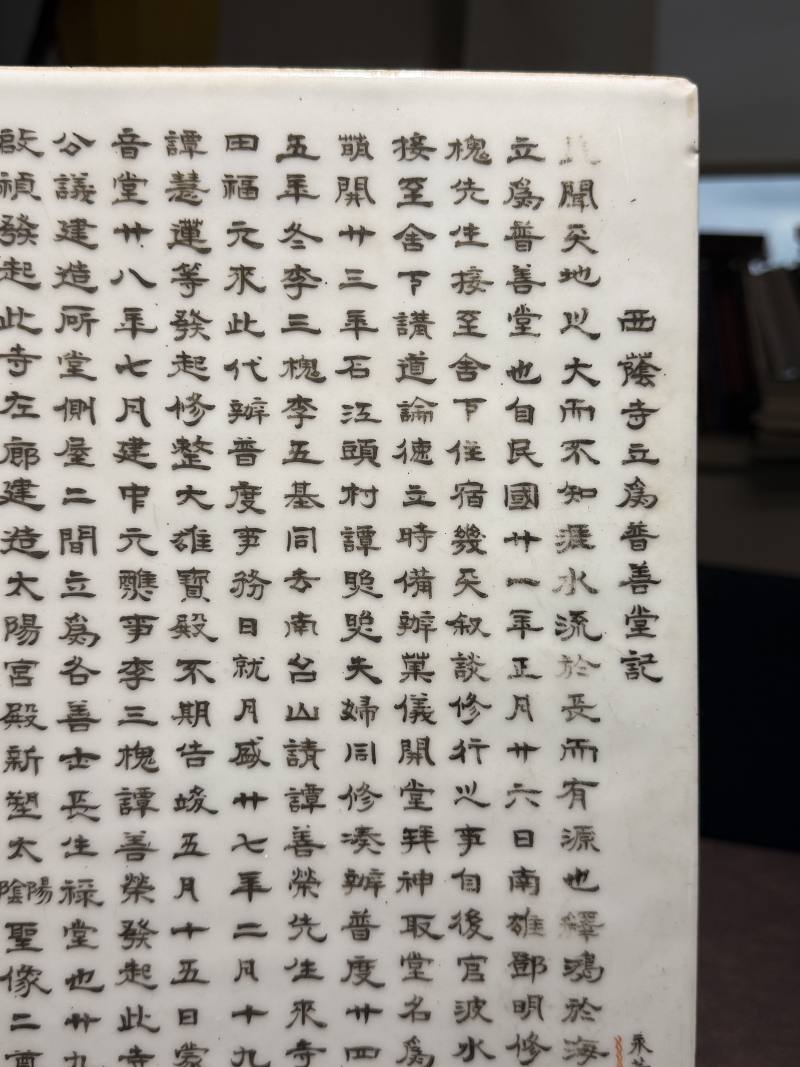 西蔭寺立為普善堂記
聞天地以大而不知涯水流於長而有源也繹鴻於海
立為普善堂也自民國廿一年正月廿六日南雄鄧明修
槐先生接至舍下住宿幾天叙談修行以事自後官波水
接至舍下講道論德立時備辦菓儀開堂拜神取堂名為
萌開廿三年石江頭村譚
夫婦同修湊辦普度廿四
五年冬李三槐李五基同去南台山請譚善榮先生來寺
田福元來此代辦普度事務日就月盛廿七年二月十九
譚慧蓮等發起修整大雄寶殿不期告竣五月十五日蒙
音堂廿八年七月建中元醮事李三槐譚善榮發起此寺
公議建造所堂側屋二間立為各善士長生祿堂也廿九
啟禎發起此寺左廊建造太陽宮殿新塑太陰陽聖像二尊